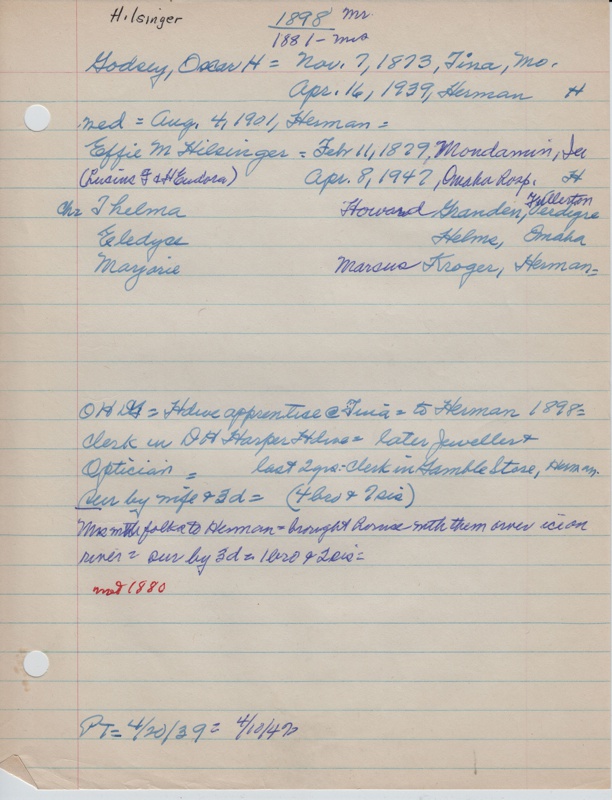 Hilsinger
1898 Mr
1881 - Mrs
Godsey, Oscar H = Nov. 7, 1873, Tina, Mo.
Apr. 16, 1939, Herman H
med = Aug. 4, 1901, Herman =
Effie M Hilsinger = Feb 11, 1879, Mondamin, Ia
(Lucius F & H Eudora) Apr. 8, 1947, Omaha Hosp. H
Fullerton
Chr Thelma Howard Granden, Verdigre
Eledyse Helms, Omaha
Marjorie Marcus Kroger, Herman =
OHG = Hdwe apprentice @ Tina = to Herman 1898 =
Clerk in DH Harper Hdwe = later Jeweller &
Optician = last 2 yrs = Clerk in Gamble Store, Herman.
Sur by wife & 3d = (4 bro & 7 sis)
Mrs with folks to Herman = brought house with them over ice on
river = sur by 3d = 1 bro & 2 sis =
med 1880
PT = 4/20/39 = 4/10/47